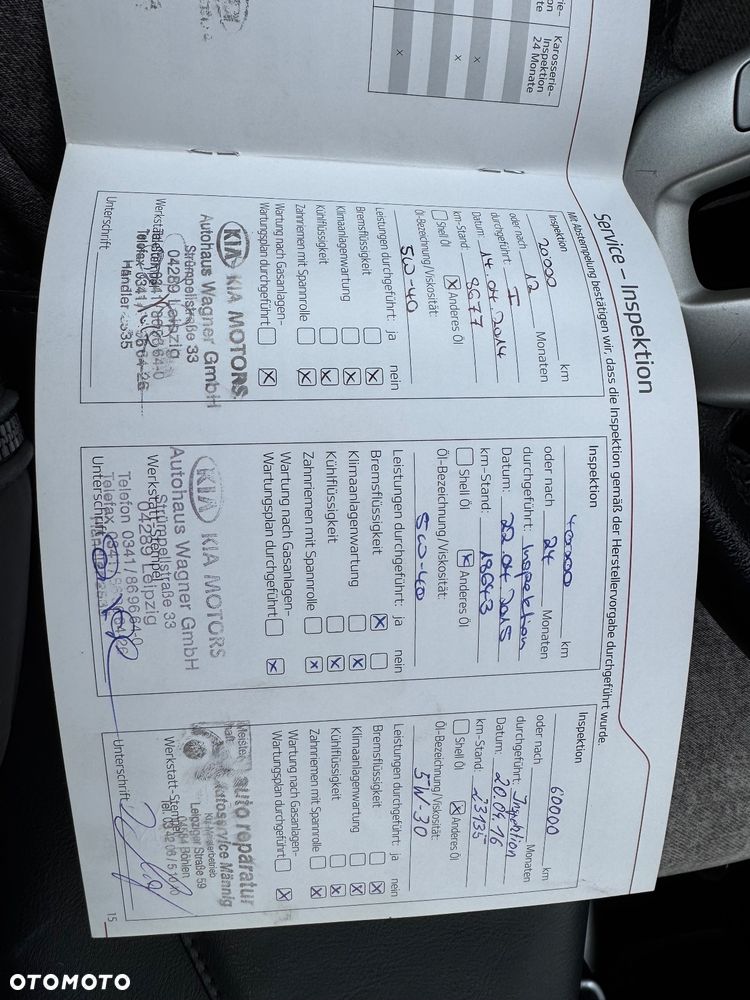 Karosserie-
Inspektion
24 Monate
x
x
x
Service – Inspektion
Mit Abstempelung bestätigen wir, dass die Inspektion gemäß der Herstellervorgabe durchgeführt wurde.
Inspektion
20000 km
oder nach 12 Monaten
durchgeführt: I
Datum: 14.04.2014
km-Stand: 8677
Shell Öl x Anderes Öl
Öl-Bezeichnung/Viskosität:
5W-40
Leistungen durchgeführt: ja nein
Bremsflüssigkeit x
Klimaanlagenwartung x
Kühlflüssigkeit x
Zahnriemen mit Spannrolle x
Wartung nach Gasanlagen-
Wartungsplan durchgeführt x
KIA KIA MOTORS
Autohaus Wagner GmbH
Strümpellstraße 33
04289 Leipzig
Werkstatt-Stempel
Händler
Unterschrift
Inspektion
40000 km
oder nach 24 Monaten
durchgeführt: Inspektion
Datum: 22.04.2015
km-Stand: 18643
Shell Öl x Anderes Öl
Öl-Bezeichnung/Viskosität:
5W-40
Leistungen durchgeführt: ja nein
Bremsflüssigkeit x
Klimaanlagenwartung x
Kühlflüssigkeit x
Zahnriemen mit Spannrolle x
Wartung nach Gasanlagen-
Wartungsplan durchgeführt x
KIA KIA MOTORS
Autohaus Wagner GmbH
Strümpellstraße 33
04289 Leipzig
Werkstatt-Stempel
Telefon 0341/869664-0
Telefax
Unterschrift
Inspektion
60000 km
oder nach Monaten
durchgeführt: Inspektion
Datum: 20.04.16
km-Stand: 23135
Shell Öl x Anderes Öl
Öl-Bezeichnung/Viskosität:
5W-30
Leistungen durchgeführt: ja nein
Bremsflüssigkeit x
Klimaanlagenwartung x
Kühlflüssigkeit x
Zahnriemen mit Spannrolle x
Wartung nach Gasanlagen-
Wartungsplan durchgeführt x
auto reparatur
Autoservice Männig
Leipziger Straße 59
04564 Böhlen
Werkstatt-Stempel
Unterschrift
15
OTOMOTO